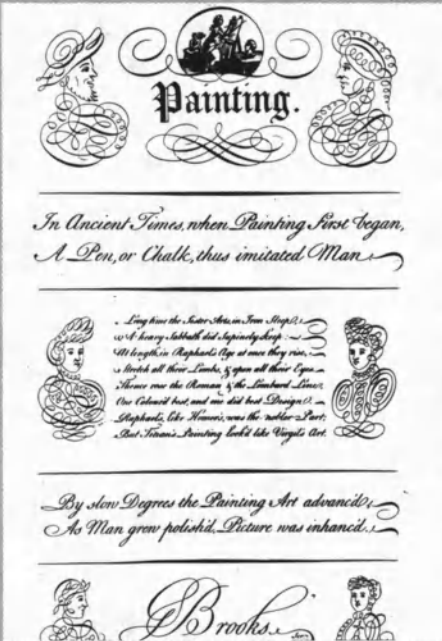 Painting.
In Ancient Times, when Painting first began,
A Pen, or Chalk, thus imitated Man
Long time the Sister Arts, in Iron Sleep,
A heavy Sabbath did supinely keep:
At length, in Raphael's Age at once they rise,
Stretch all their Limbs, & open all their Eyes
Thence rose the Roman & the Lombard Line,
One Colour'd best, and one did best Design.
Raphael's, like Homer's, was the nobler Part;
But Titian's Painting look'd like Virgil's Art.
By slow Degrees the Painting Art advanc'd,
As Man grew polish'd, Picture was inhanc'd.
Brooks